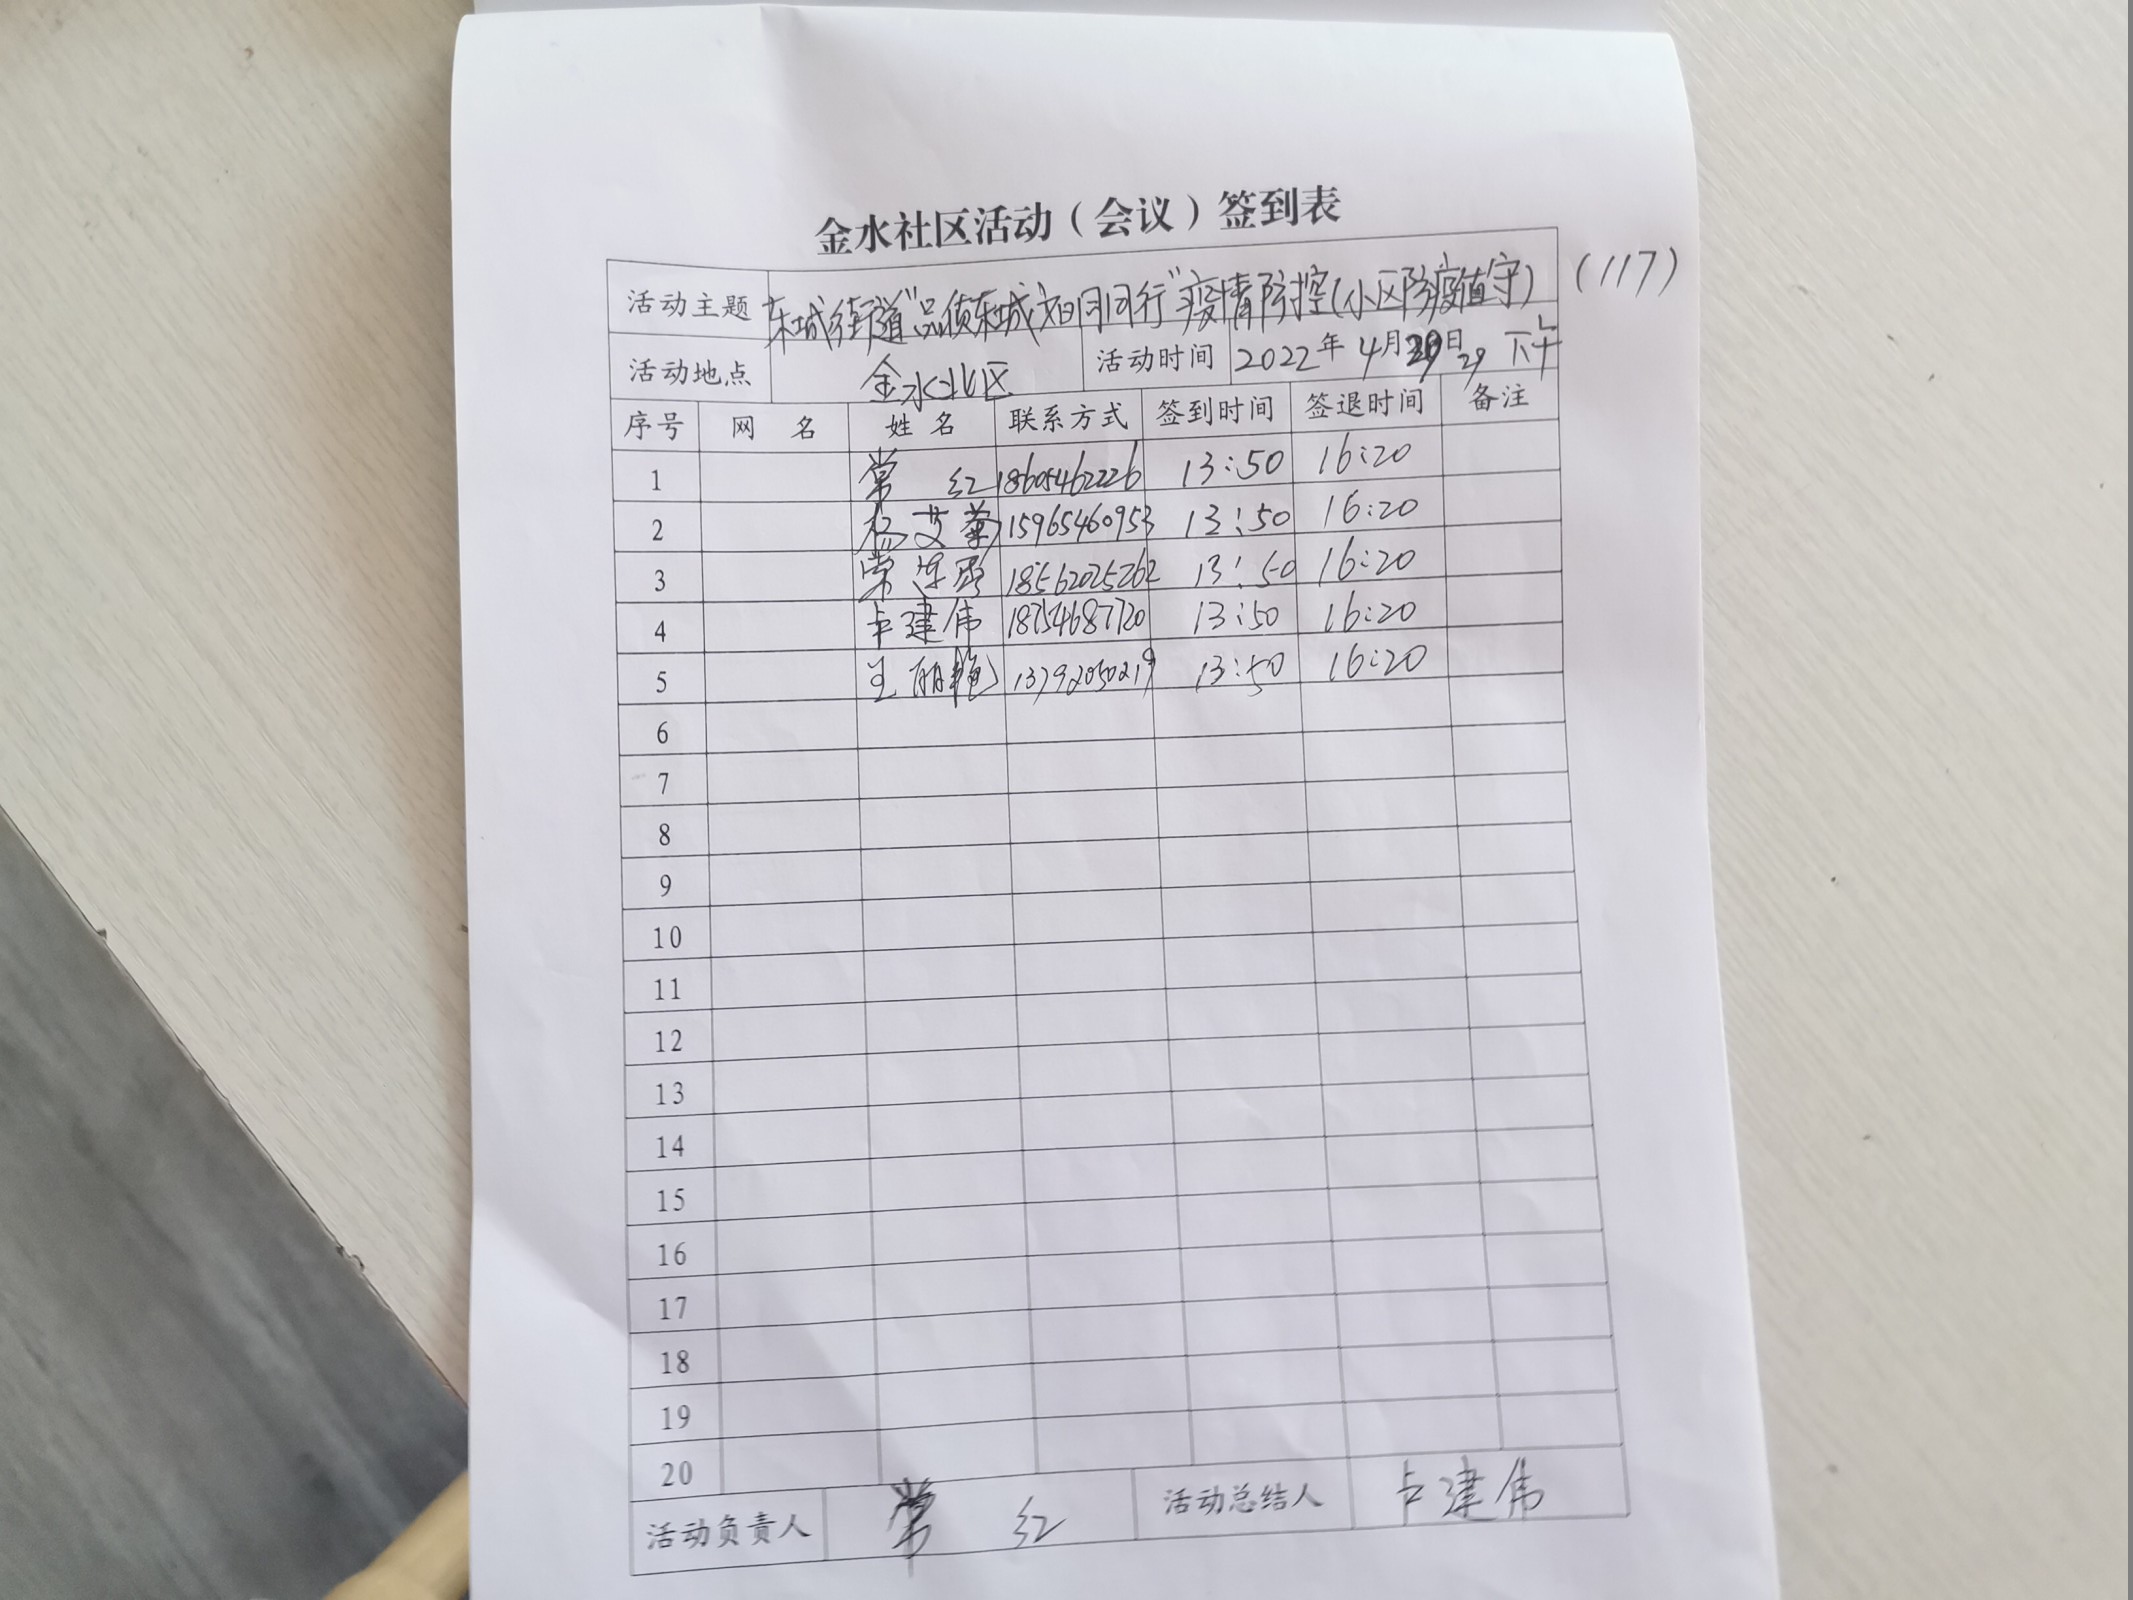 金水社区活动（会议）签到表
活动主题 东城街道"品质东城 文明同行"疫情防控(小区防疫值守) (117)
活动地点 金水北区 活动时间 2022年4月29日 29 下午
序号 网 名 姓 名 联系方式 签到时间 签退时间 备注
1 常 红 18605462226 13:50 16:20
2 杨艾菊 15965460953 13:50 16:20
3 18562025262 13:50 16:20
4 卢建伟 18754687720 13:50 16:20
5 王丽艳 13792050219 13:50 16:20
6
7
8
9
10
11
12
13
14
15
16
17
18
19
20
活动负责人 常 红 活动总结人 卢建伟